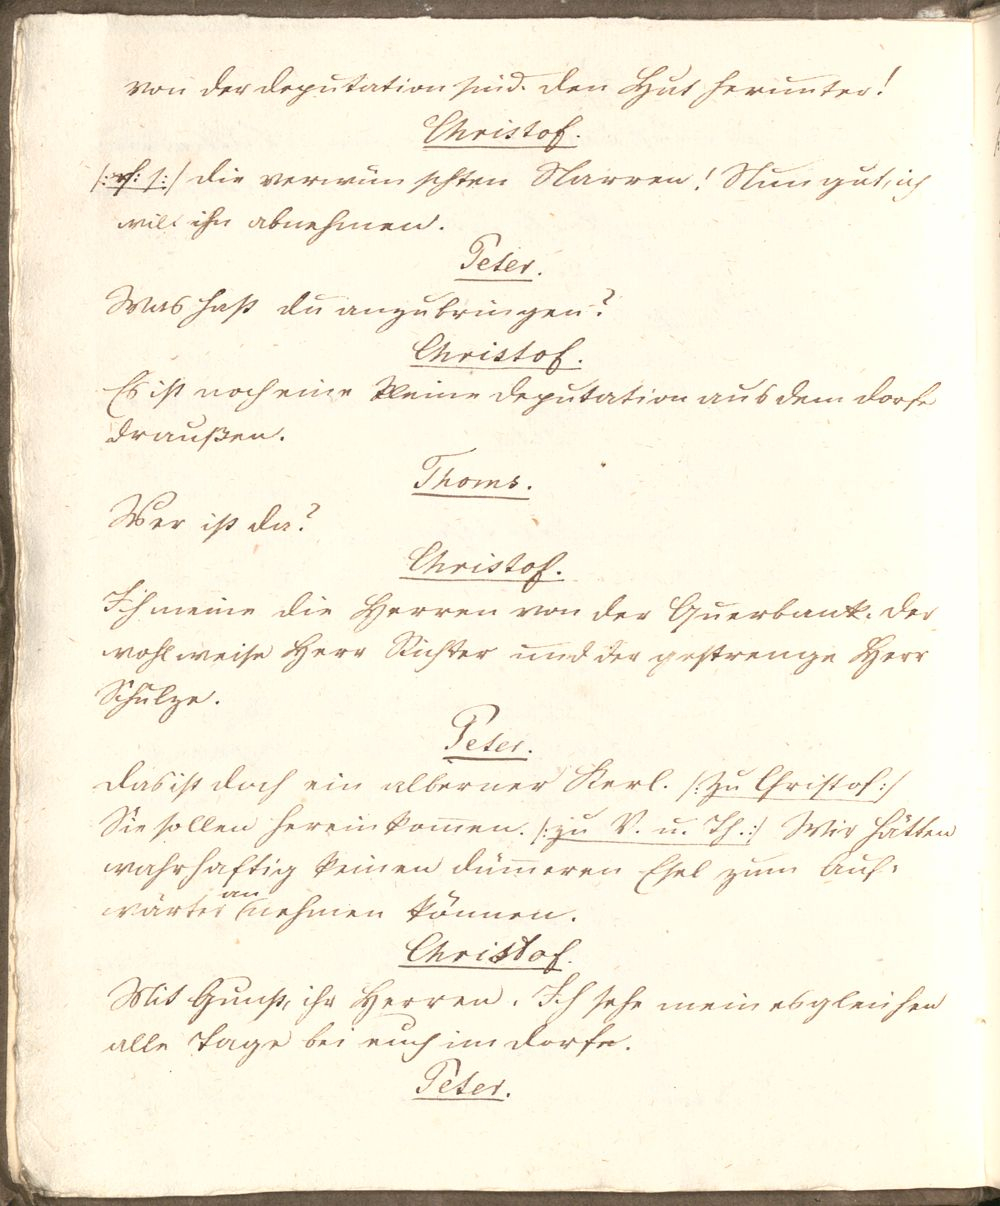 von der deputation sind. den Hut herunter!
Christof.
/: v: s :/ die verwünschten Narren! Nun gut, ich
will ihn abnehmen.
Peter.
Was hast du anzubringen?
Christof.
Es ist noch eine kleine deputation aus dem dorfe
draußen.
Thoms.
Wer ist da?
Christof.
Ich meine die Herren von der Querbank. der
wohlweise Herr Richter und der gestrenge Herr
Schulze.
Peter.
das ist doch ein alberner Kerl. /: zu Christof :/
Sie sollen hereinkom̅en. /: zu V. u. Th. :/ Wir hätten
wahrhaftig keinen düm̅eren Esel zum Auf-
wärter annehmen können.
Christof.
Mit Gunst, ihr Herren. Ich sehe meinesgleichen
alle Tage bei euch im dorfe.
Peter.